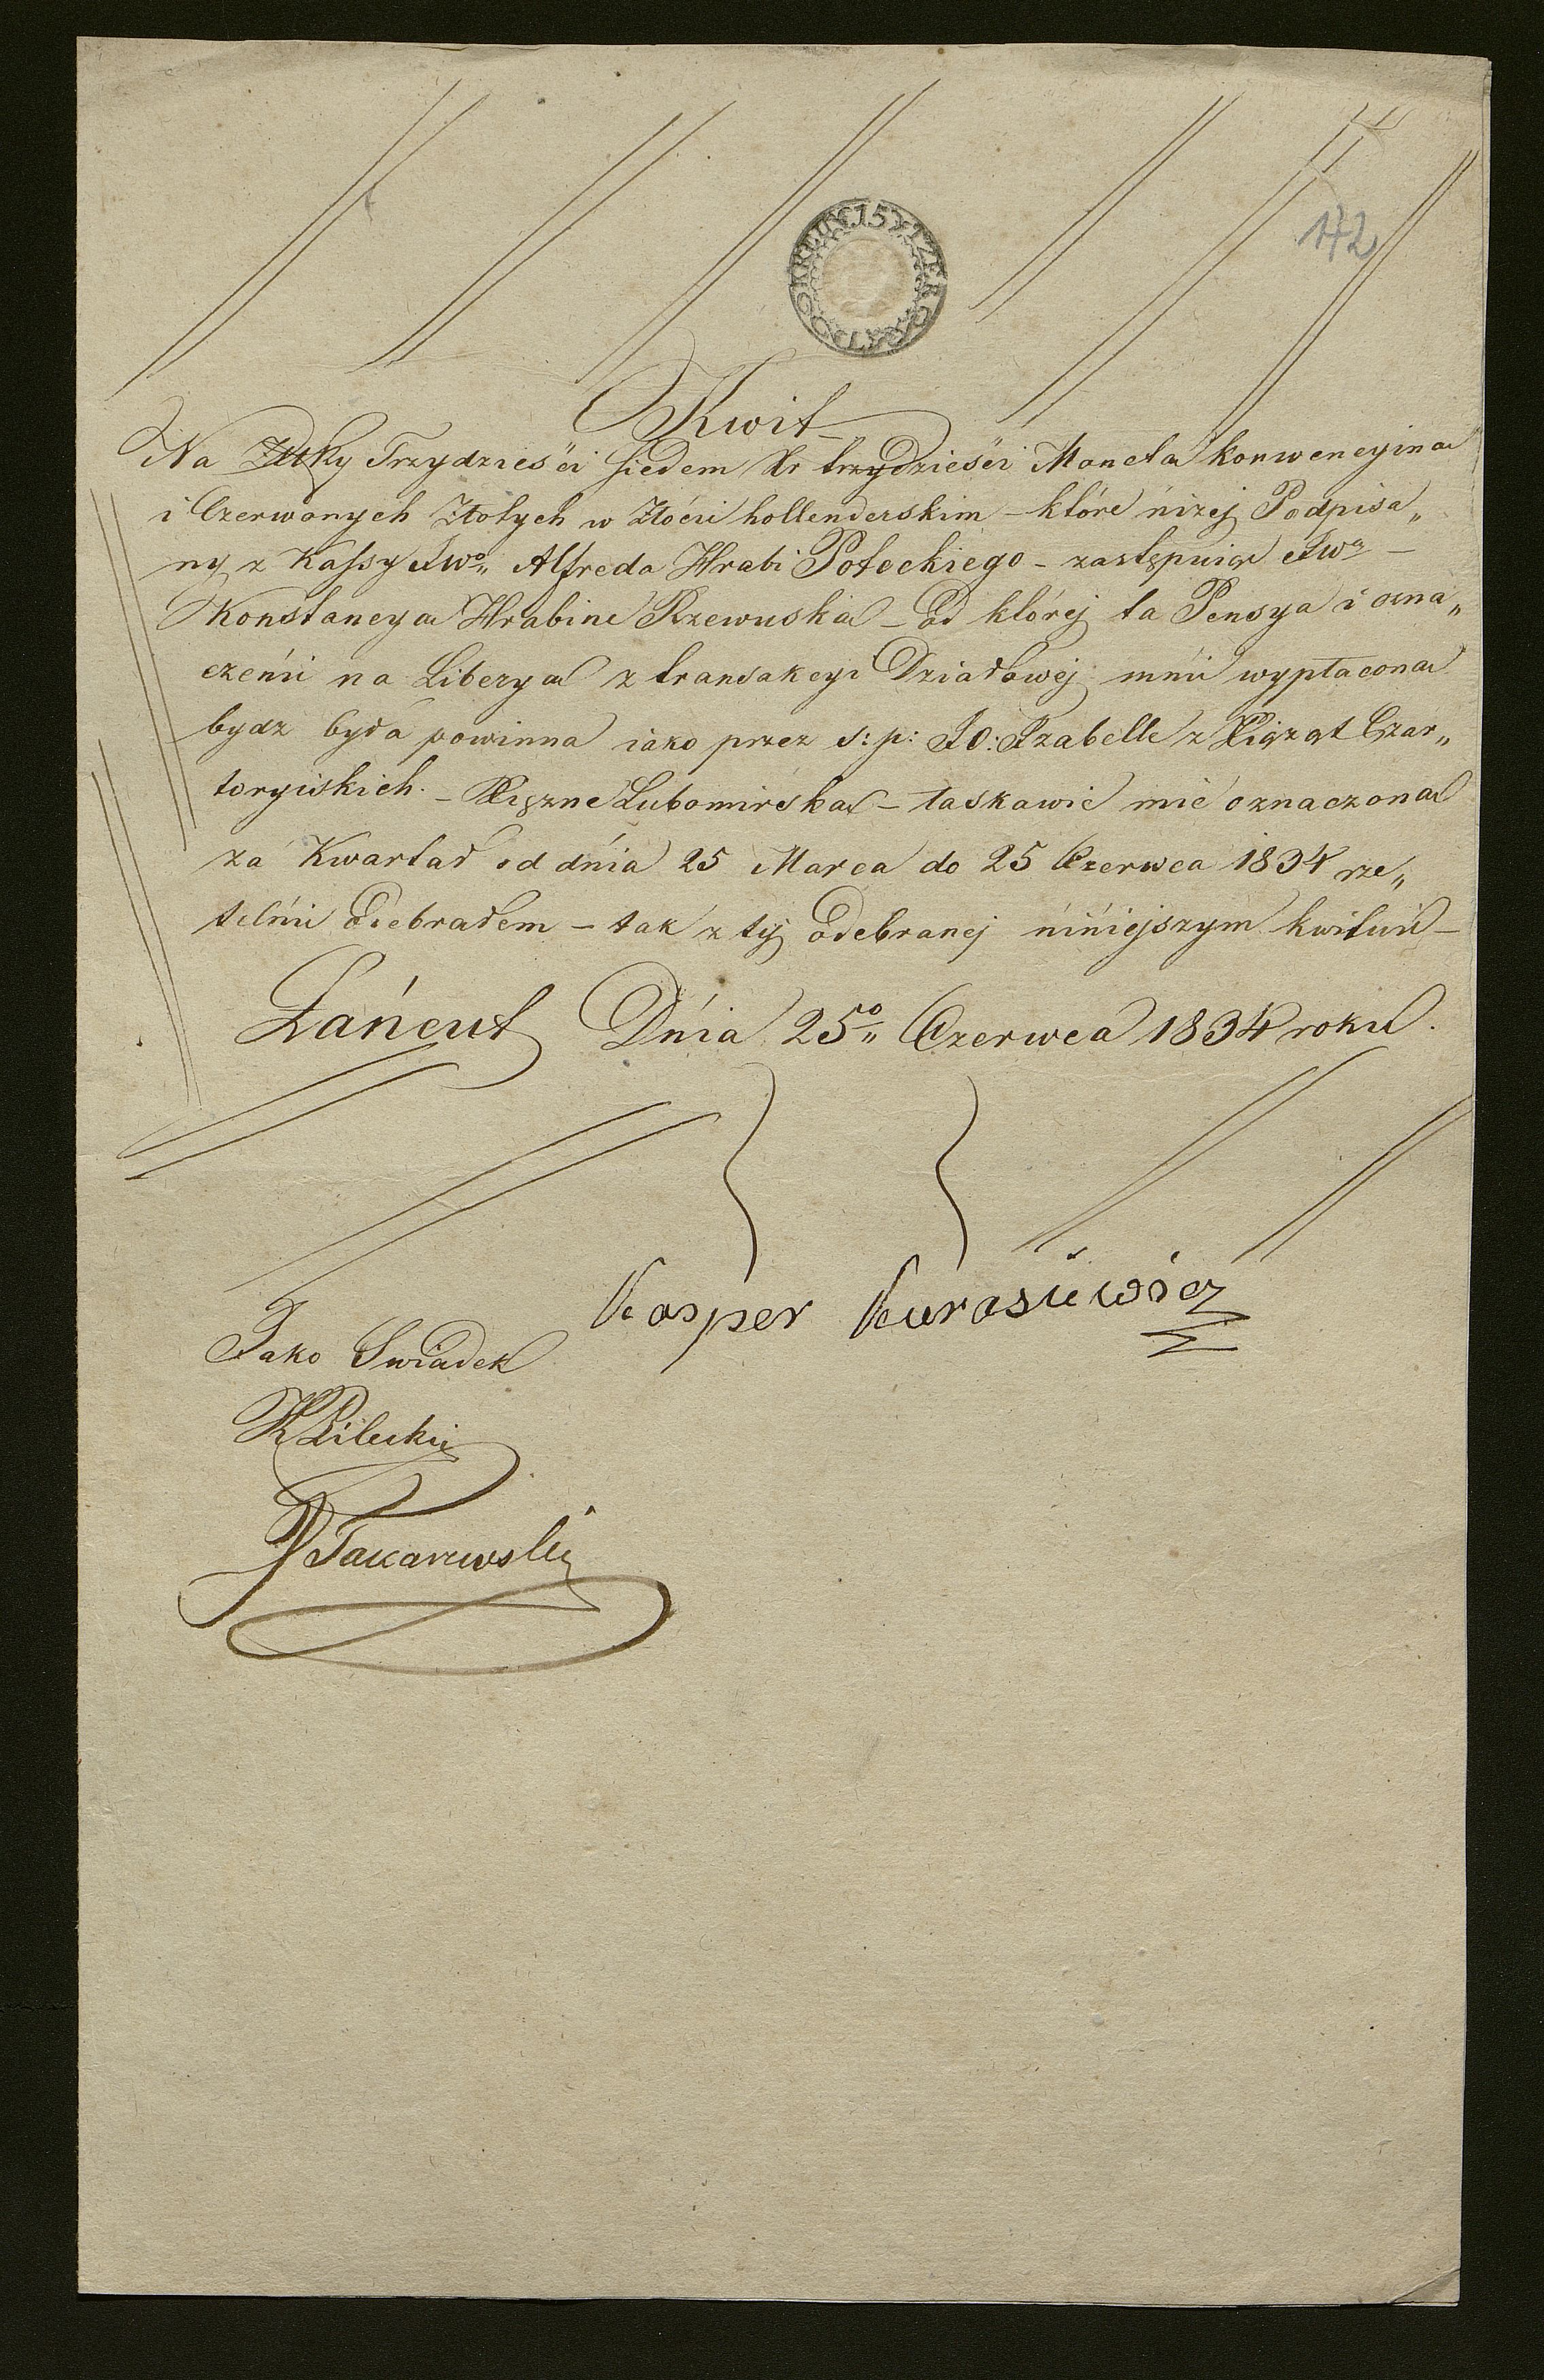 15
172
Kwit
Na Złtky Trzydzieści siedem Xr trzydzieści Moneta konwencyjna
i Czerwonych Złotych w Złócie hollenderskim – które niżej Podpisa„
ny z Kassy JWo„ Alfreda Hrabi Potockiego – zastępuiąc JWa –
Konstancya Hrabine Rzewuska – od którey ta Pensya i ozna„
czenii na Liberya z transakcyi Działowéj mnii wypłacona
bydz była powinna iako przez s: p: JO: Izabelle z Xiąząt Czar„
toryiskich. – Xięzne Lubomirska – łaskawie mié oznaczona
za Kwartał od dnia 25 Marca do 25 Czerwca 1834 rze„
telnii Odebrałem – tak z tyj odebranej niniejszym kwituié –
Łańcut Dnia 25o„ Czerwca 1834 roku.
Kasper Kurasiewicz
Jako Swiadek
K Pilecki